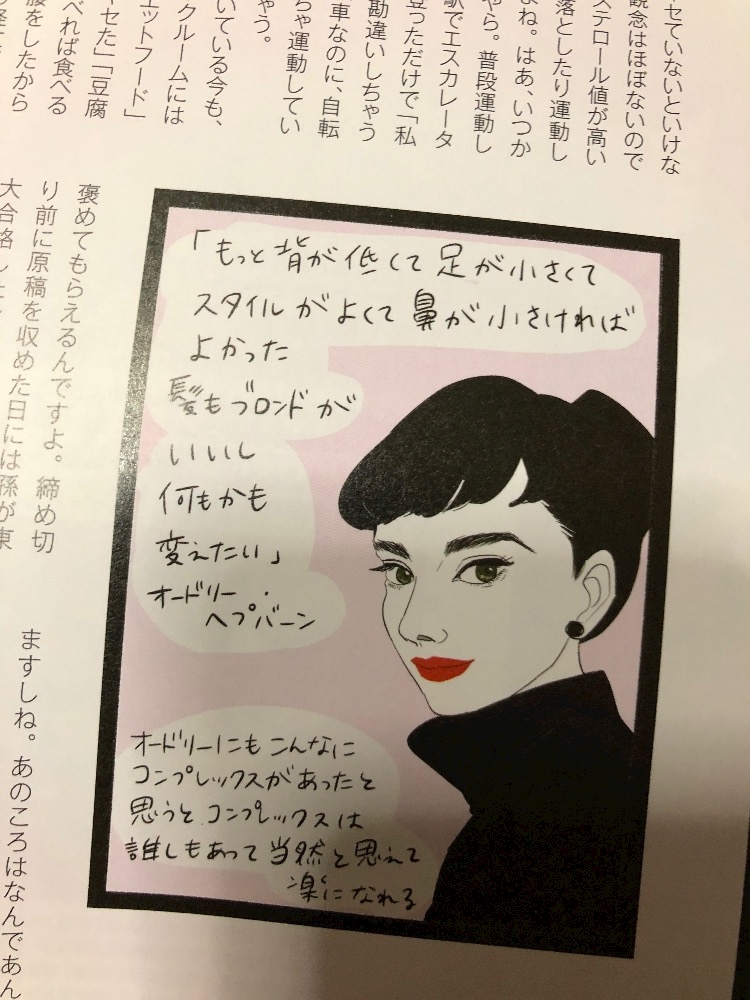 セていないといけな
観念はほぼないので
ステロール値が高い
落としたり運動し
よね。はあ、いつか
やら。普段運動し
駅でエスカレータ
登っただけで「私
勘違いしちゃう
車なのに、自転
ちゃ運動してい
ゃう。
いている今も、
クルームには
ェットフード」
セた」「豆腐
べれば食べる
腹をしたから
「もっと背が低くて足が小さくて
スタイルがよくて鼻が小さければ
よかった
髪もブロンドが
いいし
何もかも
変えたい」
オードリー・
ヘプバーン
オードリーにもこんなに
コンプレックスがあったと
思うとコンプレックスは
誰しもあって当然と思えて
楽になれる
褒めてもらえるんですよ。締め切
り前に原稿を収めた日には孫が東
大合格した
ますしね。あのころはなんであん